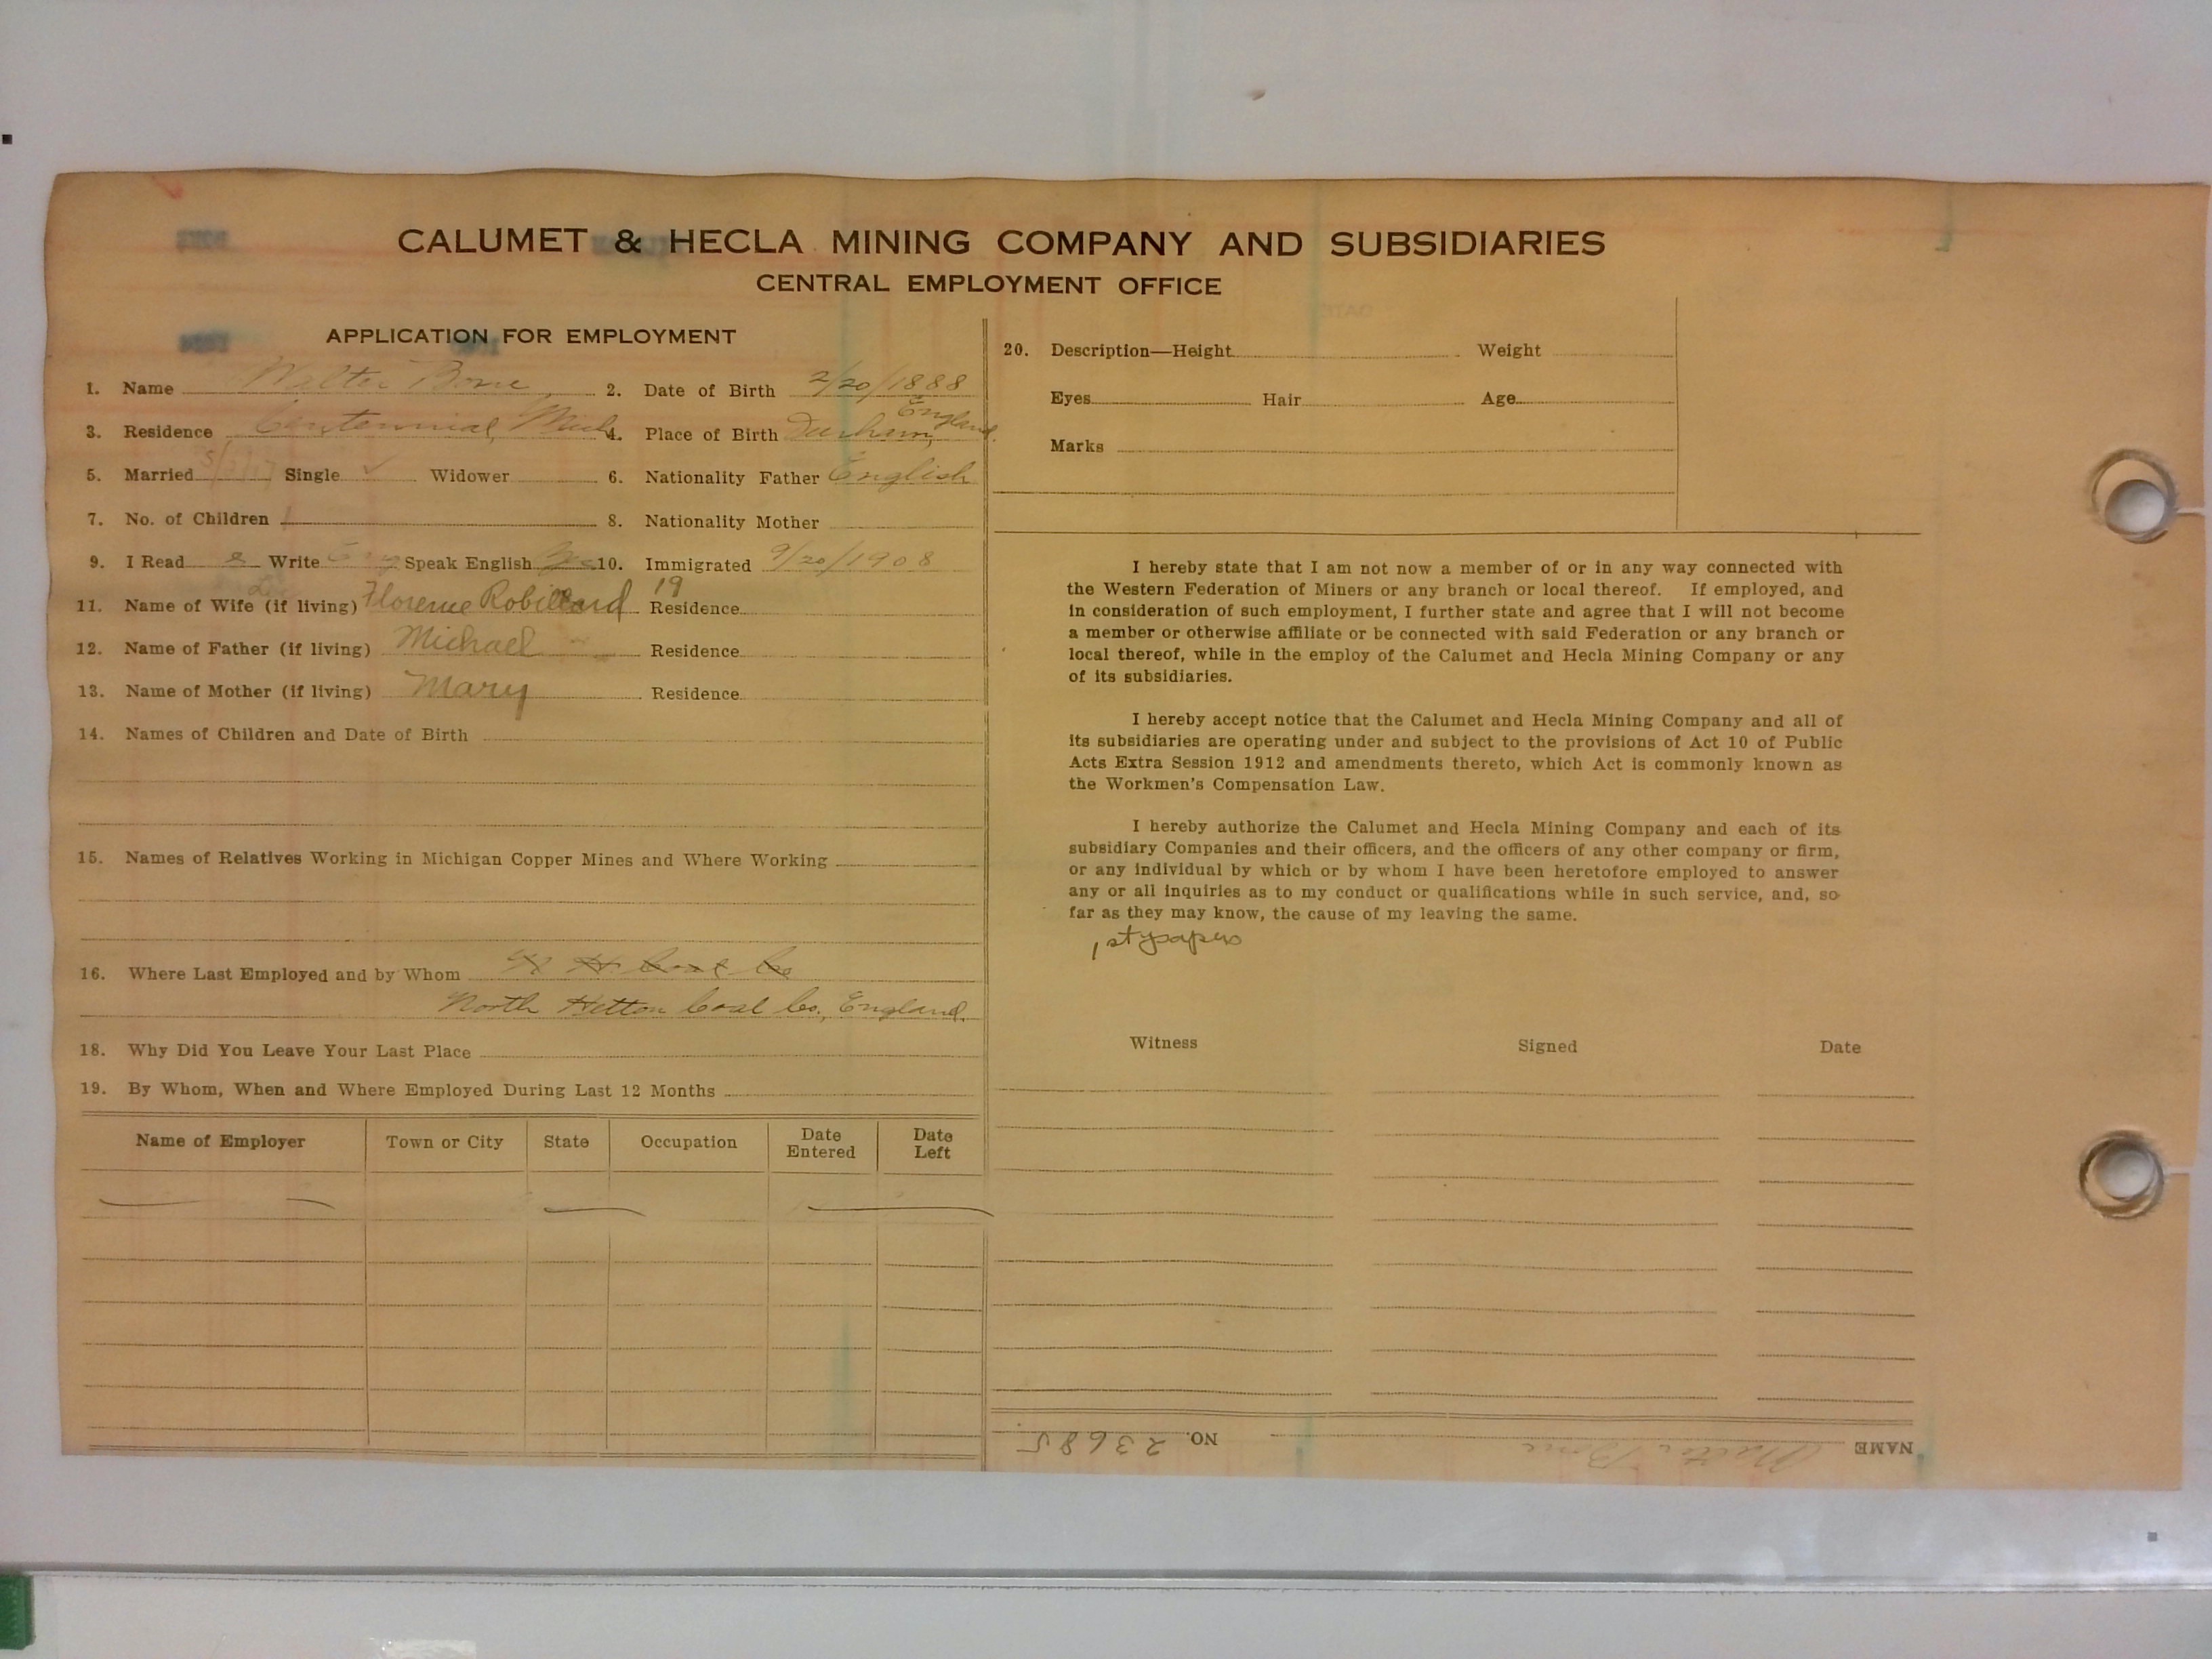 CALUMET & HECLA MINING COMPANY AND SUBSIDIARIES
CENTRAL EMPLOYMENT OFFICE
APPLICATION FOR EMPLOYMENT
1. Name Walter Bone 2. Date of Birth 2/20/1888
3. Residence Centennial, Mich 4. Place of Birth Durham, England.
5. Married Single ✓ Widower 6. Nationality Father English
7. No. of Children 8. Nationality Mother
9. I Read & Write Eng Speak English Yes 10. Immigrated 9/20/1908
11. Name of Wife (if living) Florence Robillard 19 Residence
12. Name of Father (if living) Michael Residence
13. Name of Mother (if living) Mary Residence
14. Names of Children and Date of Birth
15. Names of Relatives Working in Michigan Copper Mines and Where Working
16. Where Last Employed and by Whom
North Hetton Coal Co., England.
18. Why Did You Leave Your Last Place
19. By Whom, When and Where Employed During Last 12 Months
Name of Employer Town or City State Occupation Date Entered Date Left
20. Description—Height Weight
Eyes Hair Age
Marks
I hereby state that I am not now a member of or in any way connected with
the Western Federation of Miners or any branch or local thereof. If employed, and
in consideration of such employment, I further state and agree that I will not become
a member or otherwise affiliate or be connected with said Federation or any branch or
local thereof, while in the employ of the Calumet and Hecla Mining Company or any
of its subsidiaries.
I hereby accept notice that the Calumet and Hecla Mining Company and all of
its subsidiaries are operating under and subject to the provisions of Act 10 of Public
Acts Extra Session 1912 and amendments thereto, which Act is commonly known as
the Workmen's Compensation Law.
I hereby authorize the Calumet and Hecla Mining Company and each of its
subsidiary Companies and their officers, and the officers of any other company or firm,
or any individual by which or by whom I have been heretofore employed to answer
any or all inquiries as to my conduct or qualifications while in such service, and, so
far as they may know, the cause of my leaving the same.
1st papers
Witness Signed Date
NAME Walter Bone NO. 23685